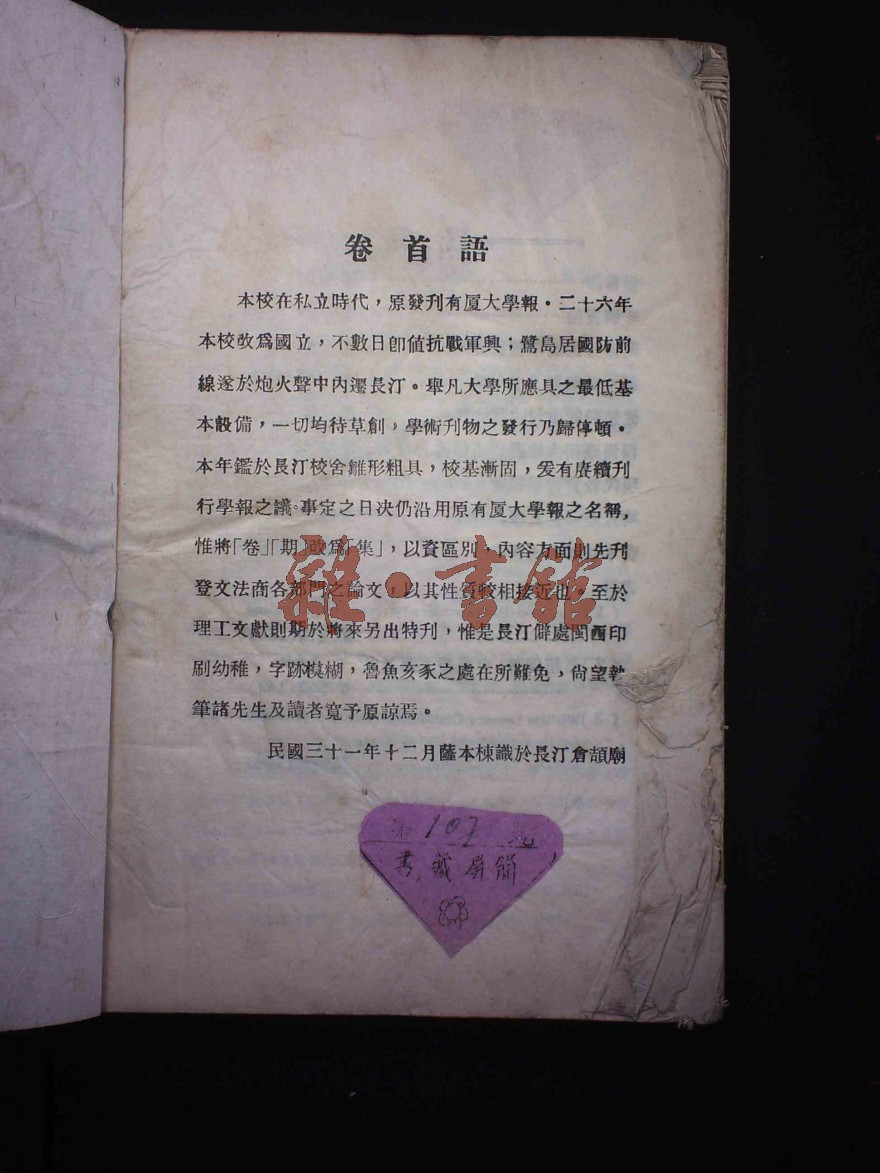 卷首語
本校在私立時代，原發刊有厦大學報・二十六年
本校改爲國立，不數日卽値抗戰軍興；鷺島居國防前
線遂於炮火聲中內遷長汀。舉凡大學所應具之最低基
本設備，一切均待草創，學術刊物之發行乃歸停頓・
本年鑑於長汀校舍雛形粗具，校基漸固，爰有賡續刊
行學報之議。事定之日决仍沿用原有厦大學報之名稱，
惟將「卷」「期」改爲「集」，以資區別，內容方面則先刋
登文法商各部門之論文，以其性質較相接近也。至於
理工文獻則期於將來另出特刋，惟是長汀僻處閩西印
刷幼稚，字跡模糊，魯魚亥豕之處在所難免，尙望執
筆諸先生及讀者寬予原諒焉。
民國三十一年十二月薩本棟識於長汀倉頡廟
雜・書館
第107號
書藏屏簡